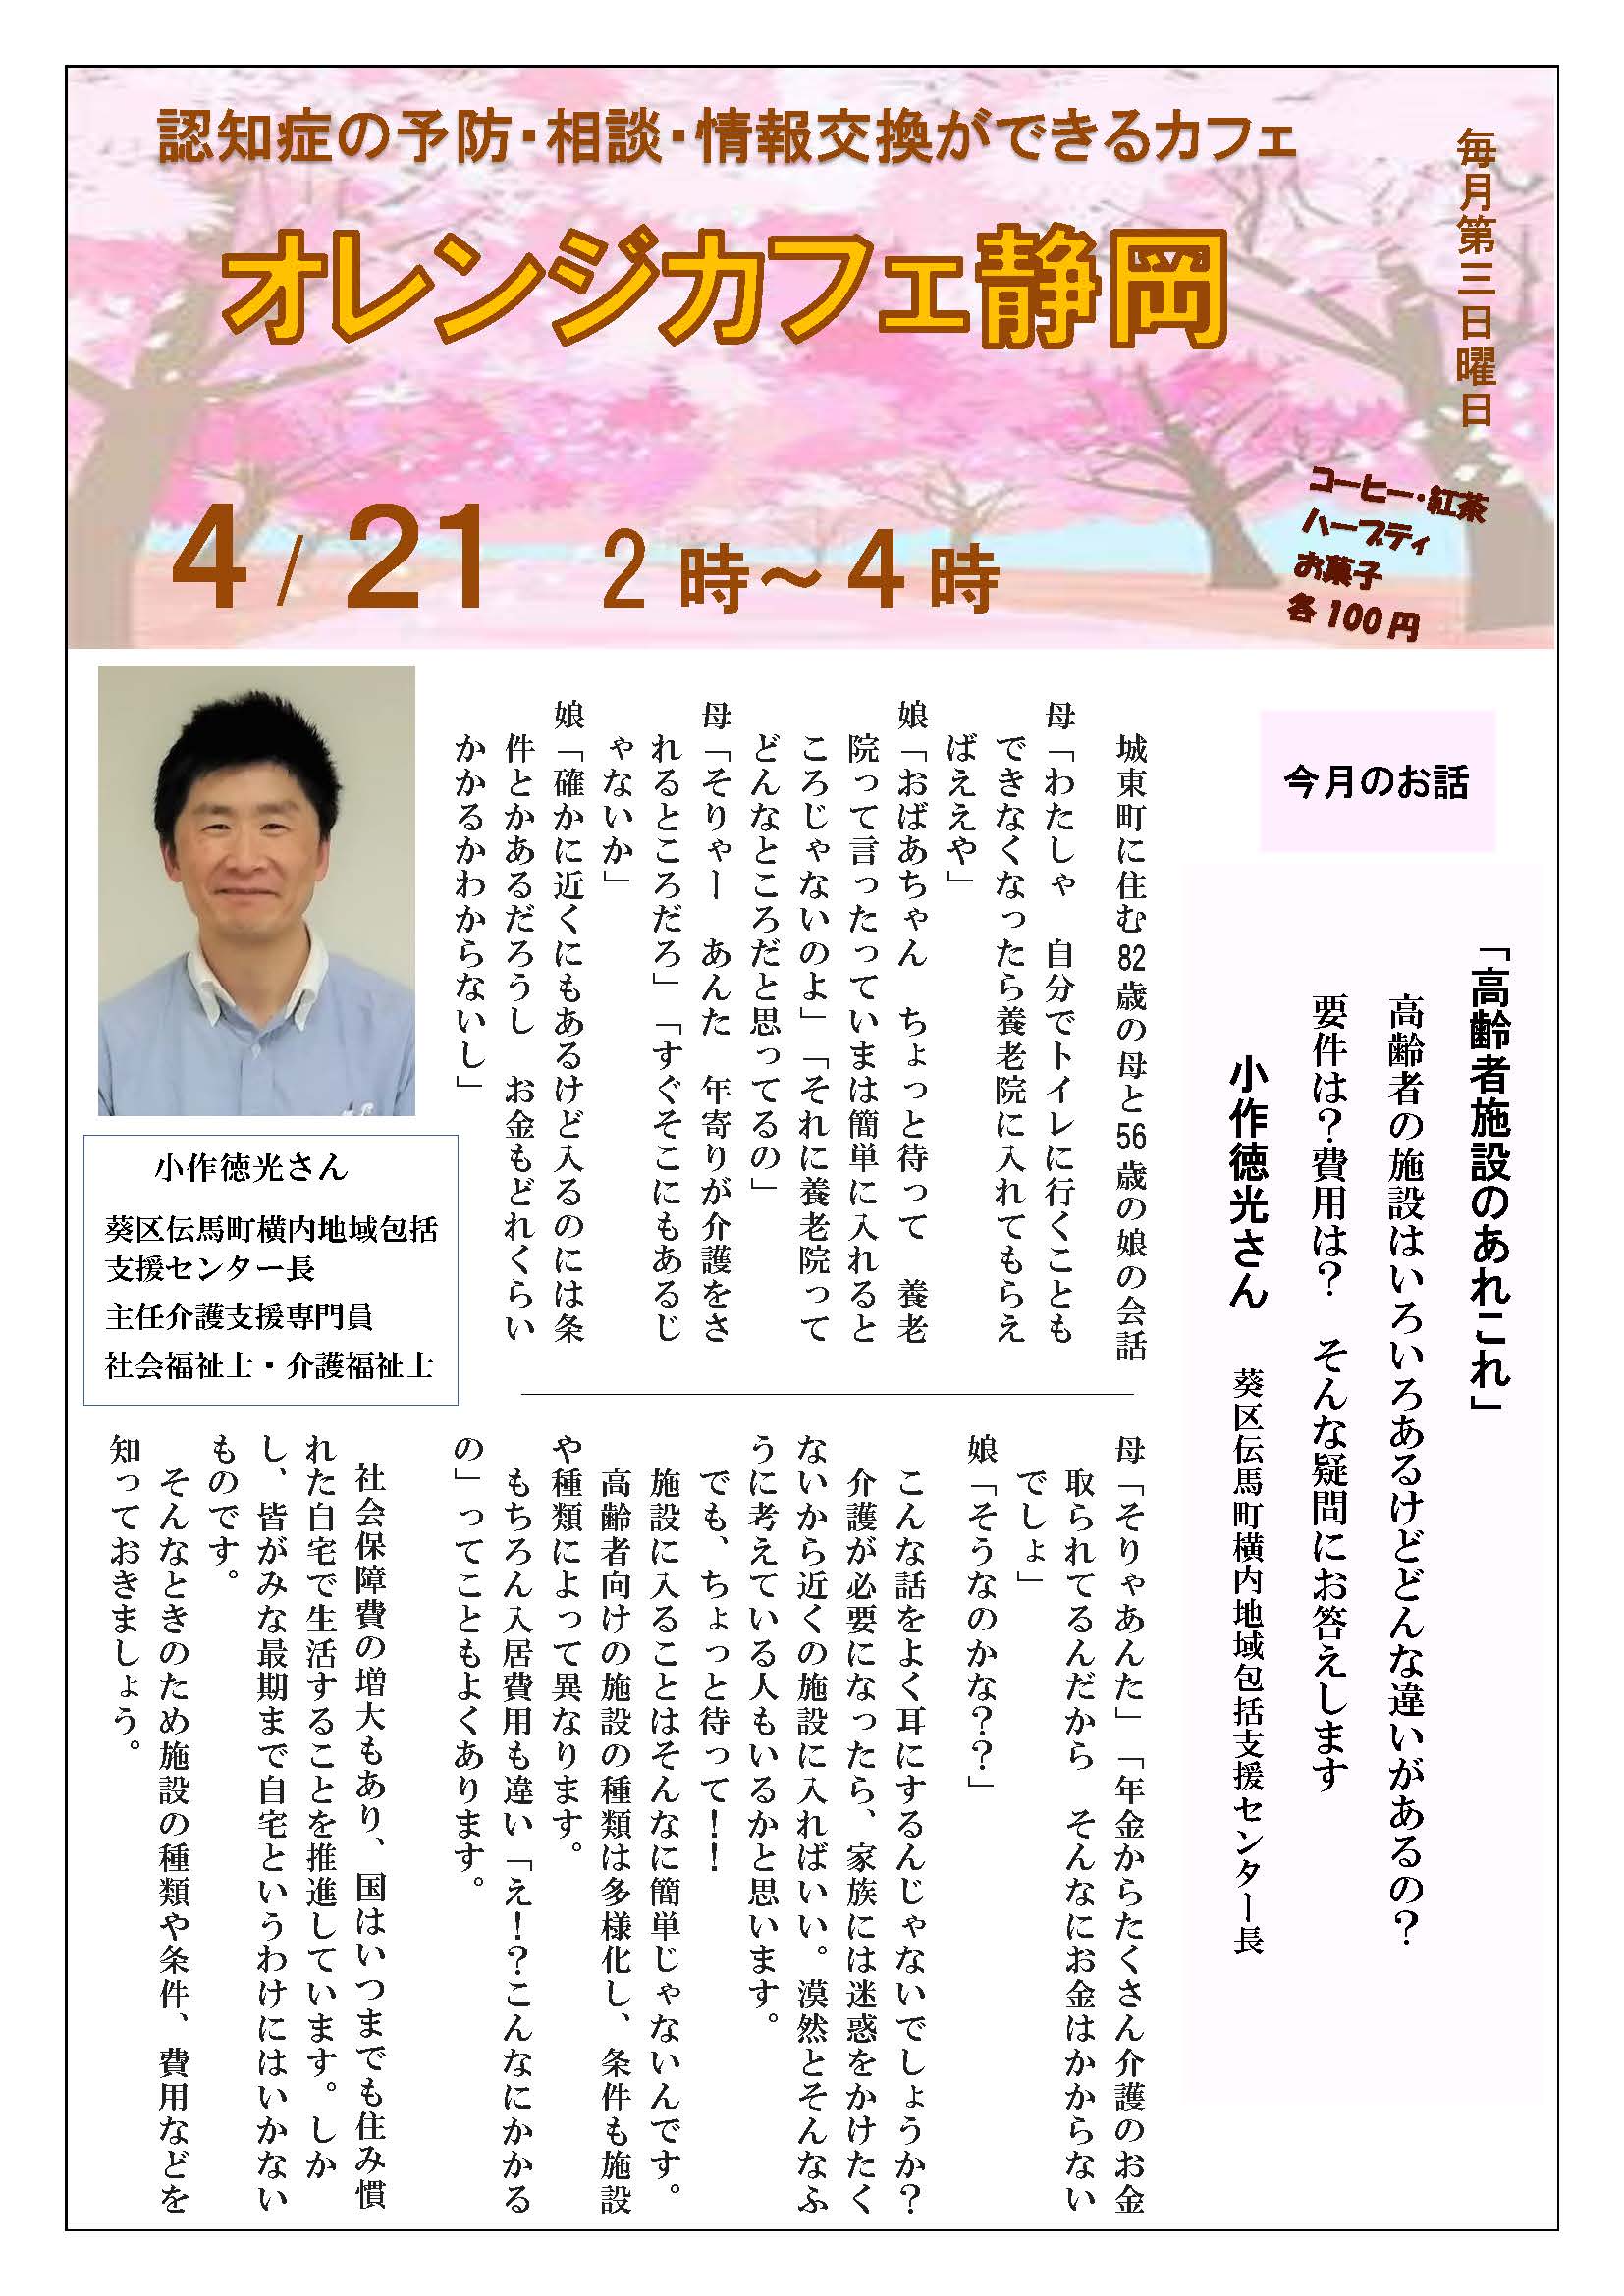 認知症の予防・相談・情報交換ができるカフェ
毎月第三日曜日
オレンジカフェ静岡
4/21 2時～4時
コーヒー・紅茶
ハーブティ
お菓子
各100円
今月のお話
「高齢者施設のあれこれ」
高齢者の施設はいろいろあるけどどんな違いがあるの？
要件は？費用は？ そんな疑問にお答えします
小作徳光さん 葵区伝馬町横内地域包括支援センター長
城東町に住む82歳の母と56歳の娘の会話
母「わたしゃ 自分でトイレに行くことも
できなくなったら養老院に入れてもらえ
ばええや」
娘「おばあちゃん ちょっと待って 養老
院って言ったっていまは簡単に入れると
ころじゃないのよ」「それに養老院って
どんなところだと思ってるの」
母「そりゃー あんた 年寄りが介護をさ
れるところだろ」「すぐそこにもあるじ
ゃないか」
娘「確かに近くにもあるけど入るのには条
件とかあるだろうし お金もどれくらい
かかるかわからないし」
小作徳光さん
葵区伝馬町横内地域包括
支援センター長
主任介護支援専門員
社会福祉士・介護福祉士
母「そりゃあんた」「年金からたくさん介護のお金
取られてるんだから そんなにお金はかからない
でしょ」
娘「そうなのかな？？」
こんな話をよく耳にするんじゃないでしょうか？
介護が必要になったら、家族には迷惑をかけたく
ないから近くの施設に入ればいい。漠然とそんなふ
うに考えている人もいるかと思います。
でも、ちょっと待って！！
施設に入ることはそんなに簡単じゃないんです。
高齢者向けの施設の種類は多様化し、条件も施設
や種類によって異なります。
もちろん入居費用も違い「え！？こんなにかかる
の」ってこともよくあります。
社会保障費の増大もあり、国はいつまでも住み慣
れた自宅で生活することを推進しています。しか
し、皆がみな最期まで自宅というわけにはいかない
ものです。
そんなときのため施設の種類や条件、費用などを
知っておきましょう。